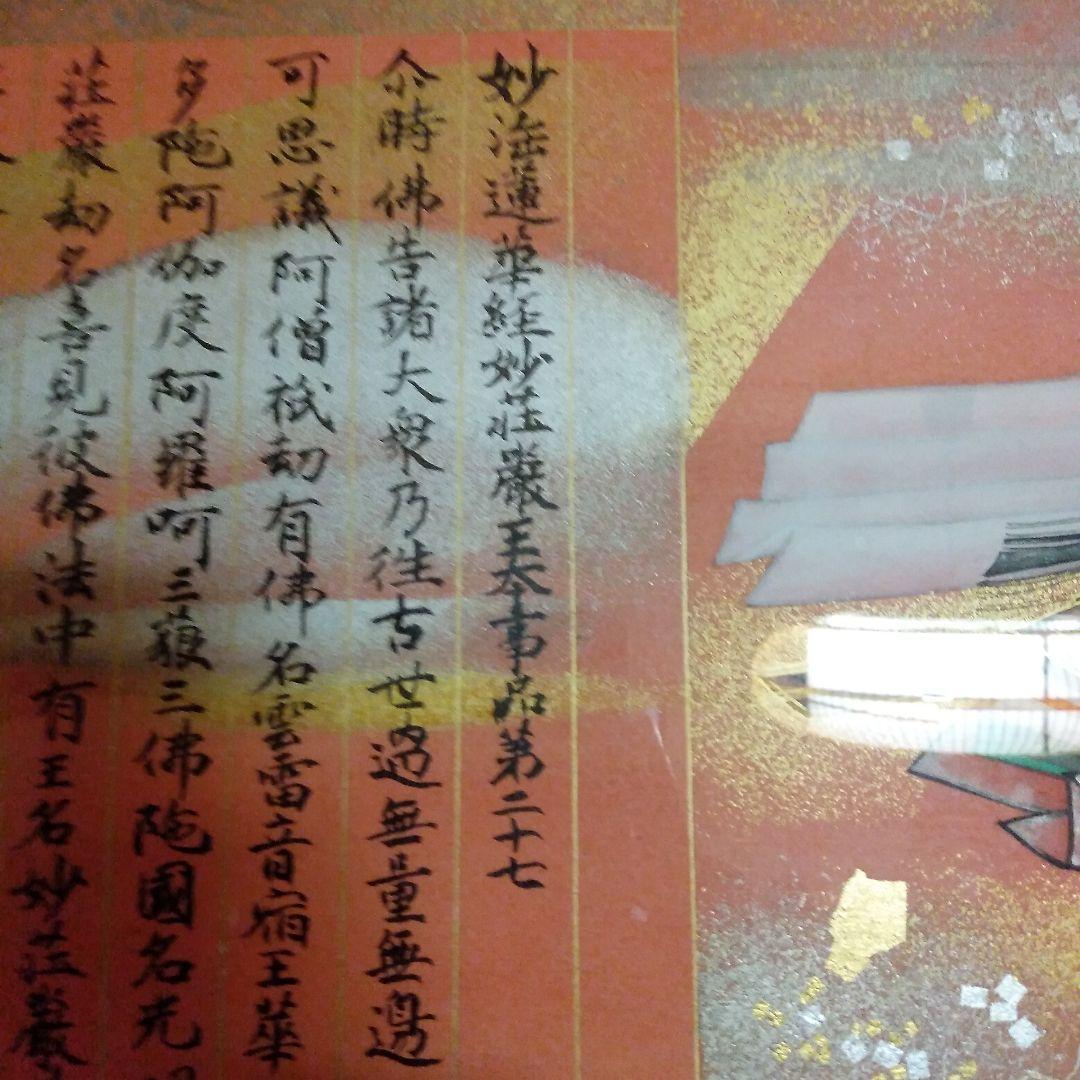 妙法蓮華経妙荘嚴王本事品第二十七
尒時佛告諸大衆乃往古世過無量無邊
可思議阿僧祇劫有佛名雲雷音宿王華
多陁阿伽度阿羅呵三藐三佛陁國名光
荘嚴劫名喜見彼佛法中有王名妙荘嚴